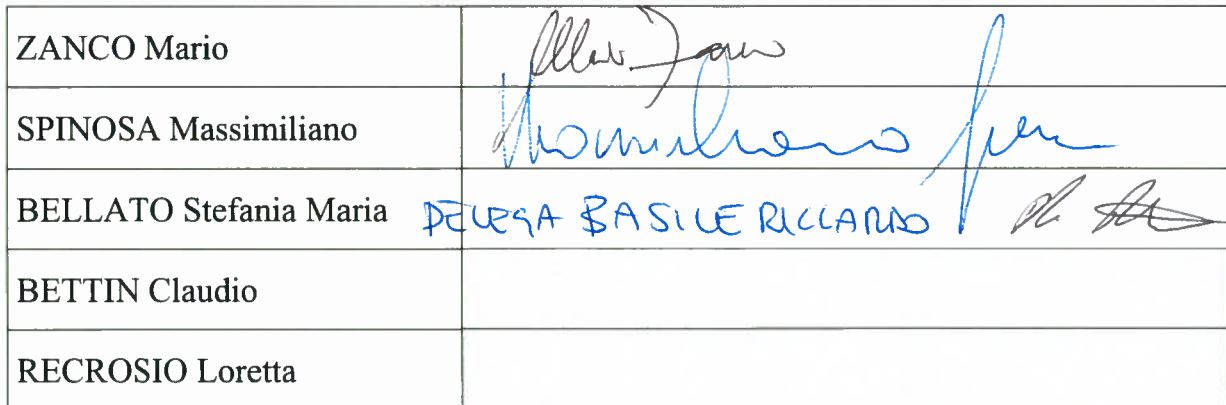 ZANCO Mario
SPINOSA Massimiliano Massimiliano
BELLATO Stefania Maria DELEGA BASILE RICCARDO
BETTIN Claudio
RECROSIO Loretta